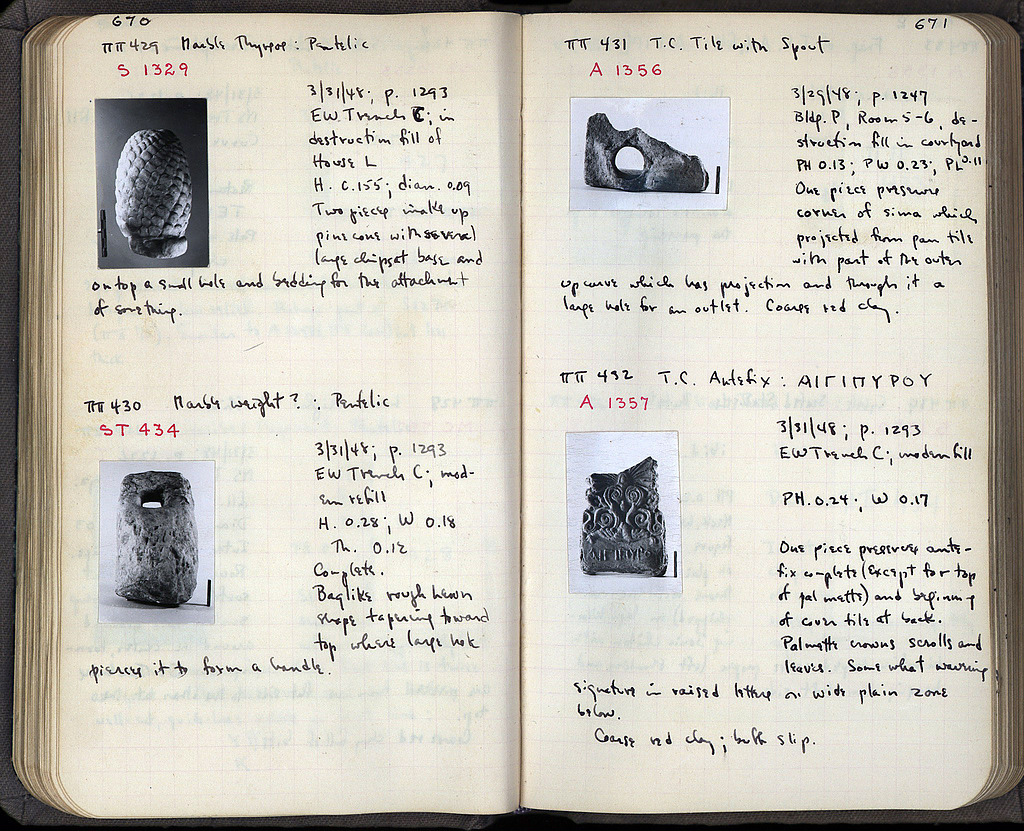 670
ΠΠ 429 Marble Thyrsos : Pentelic
S 1329
3/31/48; p. 1293
EW Trench C; in
destruction fill of
House L
H. 0.155; diam. 0.09
Two pieces make up
pine cone with several
large chips at base and
on top a small hole and bedding for the attachment
of something.
ΠΠ 430 Marble weight? : Pentelic
ST 434
3/31/48; p. 1293
EW Trench C; mod-
ern refill
H. 0.28; W 0.18
Th. 0.12
Complete.
Baglike rough hewn
shape tapering toward
top where large hole
pierces it to form a handle.
671
ΠΠ 431 T.C. Tile with Spout
A 1356
3/29/48; p. 1247
Bldg. P, Room 5-6, de-
struction fill in courtyard
PH 0.13; PW 0.23; PL 0.11
One piece preserves
corner of sima which
projected from pan tile
with part of the outer
upcurve which has projection and through it a
large hole for an outlet. Coarse red clay.
ΠΠ 432 T.C. Antefix : ΑΙΓΙΠΥΡΟΥ
A 1357
3/31/48; p. 1293
EW Trench C; modern fill
PH. 0.24; W 0.17
One piece preserves ante-
fix complete (except for top
of palmette) and beginning
of cover tile at back.
Palmette crowns scrolls and
leaves. Somewhat wavering
signature in raised letters on wide plain zone
below.
Coarse red clay; buff slip.